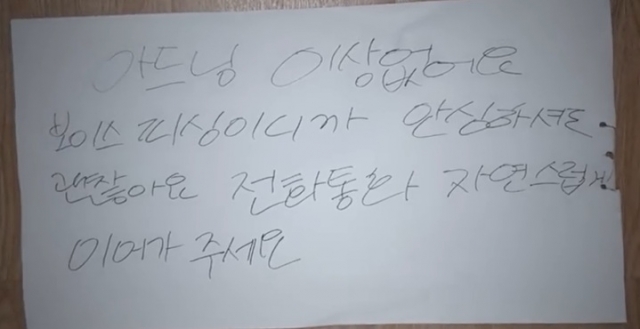 아드님 이상없어요
보이스 피싱이니까 안심하셔도
괜찮아요 전화통화 자연스럽게
이어가 주세요